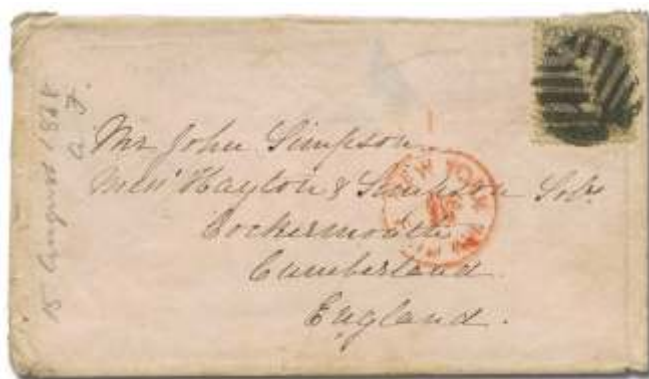 15 August 1868
a. J.
Mr John Simpson
Mess' Hayton & Simpson Solrs
Cockermouth
Cumberland
England.
NEW YORK